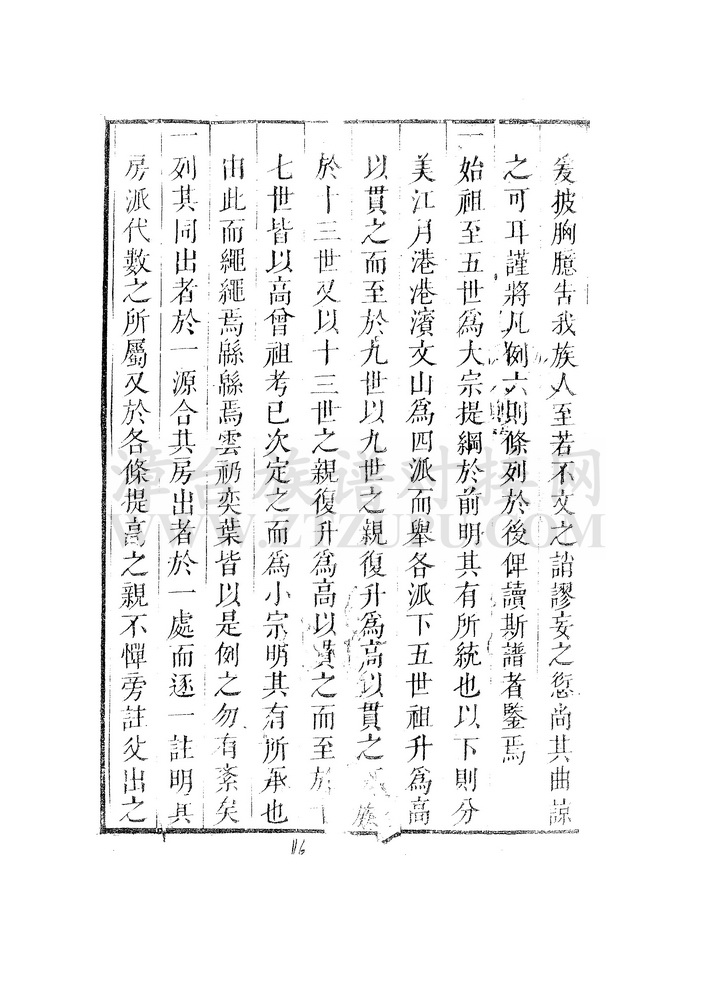 爰披胸臆告我族人至若不文之誚謬妄之愆尚其曲諒
之可耳謹將凡例六則條列於後俾讀斯譜者鑒焉
一始祖至五世為大宗提綱於前明其有所統也以下則分
美江月港港濱文山為四派而舉各派下五世祖升為高
以貫之而至於九世以九世之親復升為高以貫之
於十三世又以十三世之親復升為高以貫之而至於十
七世皆以高曾祖考已次定之而為小宗明其有所承也
由此而繩繩焉緜緜焉雲礽奕葉皆以是例之勿有紊矣
一列其同出者於一源合其房出者於一處而逐一註明其
房派代數之所屬又於各條提高之親不憚旁註父出之
116
漳台族谱对接网
WWW.ZTZUPU.COM